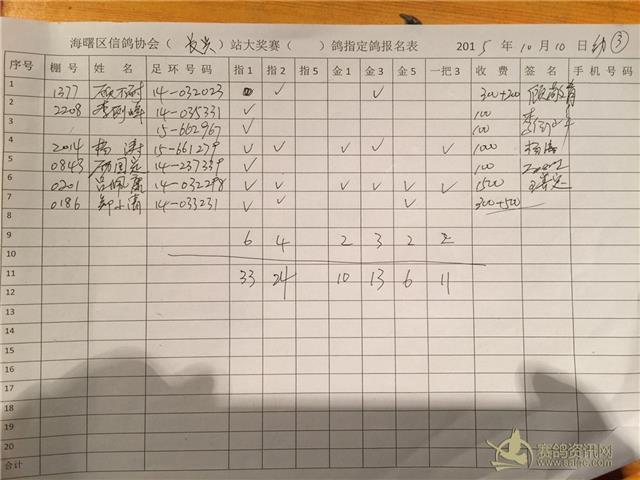 海曙区信鸽协会（长兴）站大奖赛（ ）鸽指定鸽报名表 2015年10月10日 ③
序号 棚号 姓名 足环号码 指1 指2 指5 金1 金3 金5 一把3 收费 签名 手机号码
1 1377 14-032023 ✓ ✓ 300+200
2 2208 14-035331 ✓ 100
3 15-662967 ✓ 100
4 2014 杨涛 15-661279 ✓ ✓ ✓ ✓ ✓ 1000 杨涛
5 0843 14-237339 ✓ 100
6 0201 14-032298 ✓ ✓ ✓ ✓ ✓ ✓ 1500
7 0186 14-033231 ✓ ✓ ✓ 300+500
8
9 6 4 2 3 2 2
10
11 33 24 10 13 6 11
12
13
14
15
16
17
18
19
20
合计
赛鸽资讯网
www.saige.com